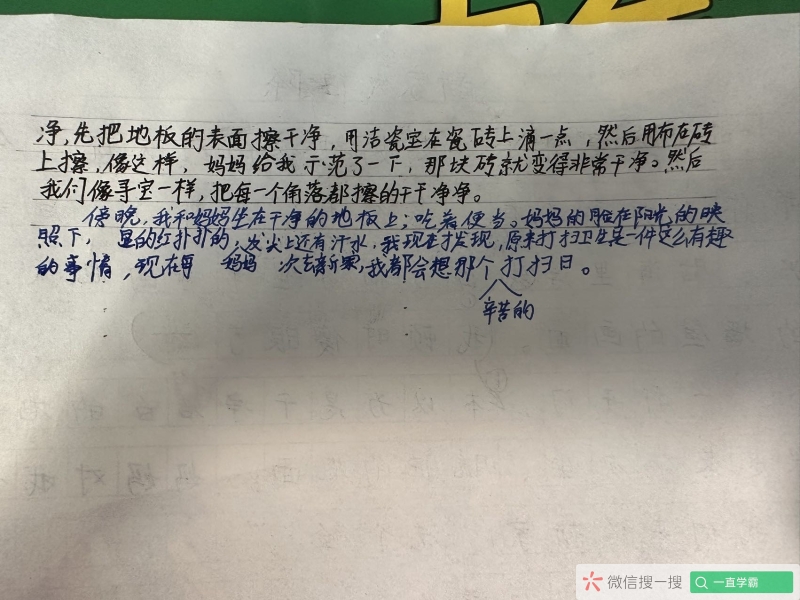 净,先把地板的表面擦干净,用洁瓷宝在瓷砖上滴一点,然后用布在砖
上擦,像这样,妈妈给我示范了一下,那块砖就变得非常干净。然后
我们像寻宝一样,把每一个角落都擦的干干净净。
傍晚,我和妈妈坐在干净的地板上,吃着便当。妈妈的脸在阳光的映
照下,显的红扑扑的,发尖上还有汗水,我现在才发现,原来打扫卫生是一件这么有趣
的事情,现在每 妈妈 次去新家,我都会想那个打扫日。
辛苦的
微信搜一搜
一直学霸